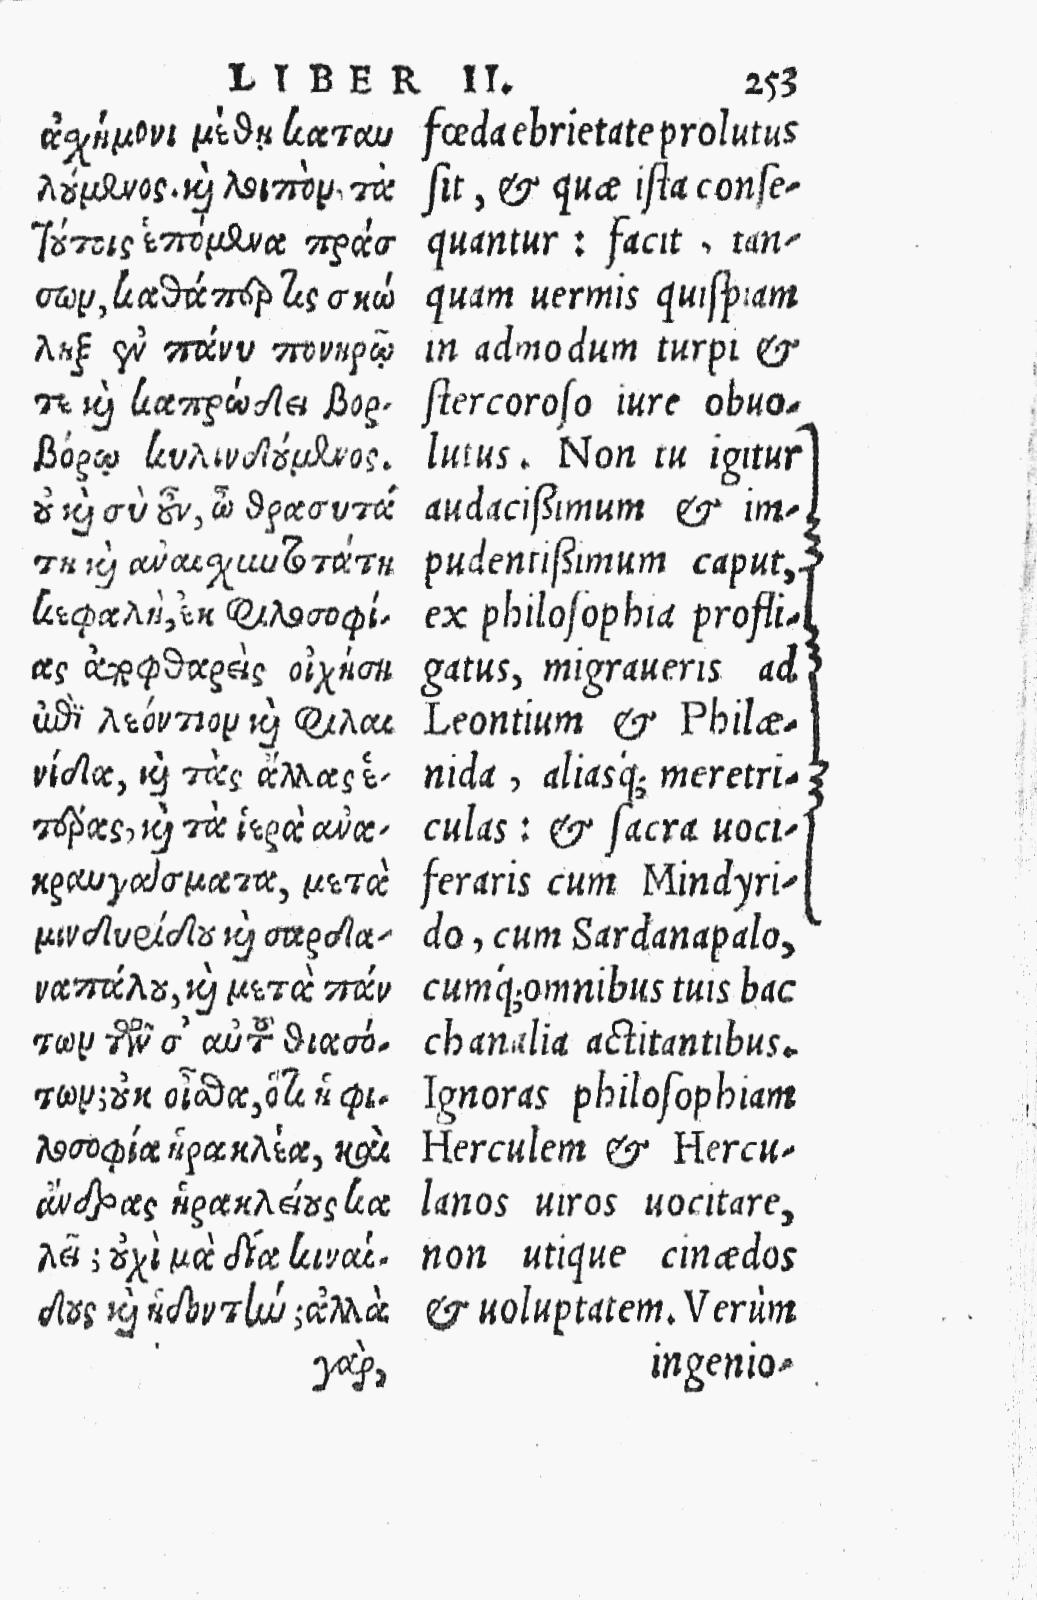 LIBER II. 253
ἀσχήμονι μέθῃ καταυ
λούμενος. καὶ λοιπὸν, τὰ
τούτοις ἑπόμενα πράσ
σων, καθάπερ τις σκώ
ληξ ἐν πάνυ πονηρῷ
τε καὶ καπρώδει βορ-
βόρῳ κυλινδούμενος.
οὐ καὶ σὺ οὖν, ὦ θρασυτά
τη καὶ ἀναισχυντοτάτη
κεφαλὴ, ἐκ φιλοσοφί-
ας παραφθαρεὶς οἰχήσῃ
ἐπὶ λεόντιον καὶ φιλαι
νίδα, καὶ τὰς ἄλλας ἑ-
ταίρας, καὶ τὰ ἱερὰ ἀνα-
κραυγάσματα, μετὰ
μινδυρίδου καὶ σαρδα-
ναπάλου, καὶ μετὰ πάν
των τῶν σ᾽ αὐτοῦ θιασό-
των; οὐκ οἶσθα, ὅτι ἡ φι-
λοσοφία ἡρακλέα, καὶ
ἄνδρας ἡρακλείους κα
λεῖ; οὐχὶ μὰ δία κιναί-
δους καὶ ἡδοντὼ; ἀλλὰ
γὰρ,
fœda ebrietate prolutus
ſit, & quæ iſta conſe-
quantur: facit, tan-
quam uermis quiſpiam
in admodum turpi &
ſtercoroſo iure obuo-
lutus. Non tu igitur
audacißimum & im-
pudentißimum caput,
ex philoſophia profli-
gatus, migraueris ad
Leontium & Philæ-
nida, aliasq́; meretri-
culas: & ſacra uoci-
feraris cum Mindyri-
do, cum Sardanapalo,
cumq́; omnibus tuis bac
chanalia actitantibus.
Ignoras philoſophiam
Herculem & Hercu-
lanos uiros uocitare,
non utique cinædos
& uoluptatem. Verùm
ingenio-